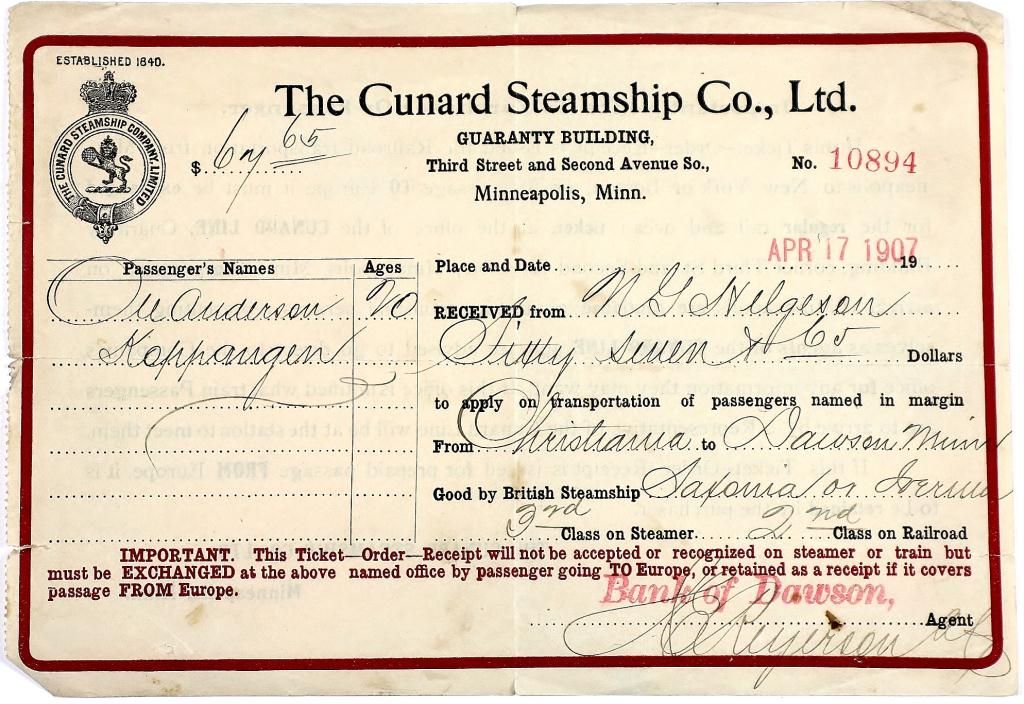 ESTABLISHED 1840.
THE CUNARD STEAMSHIP COMPANY LIMITED
The Cunard Steamship Co., Ltd.
GUARANTY BUILDING,
$ 67 65
Third Street and Second Avenue So.,
No. 10894
Minneapolis, Minn.
APR 17 1907
Passenger's Names Ages
Place and Date 19
Ole Anderson 20
RECEIVED from N G Helgeson
Koppangen
Fifty seven & 65 Dollars
to apply on transportation of passengers named in margin
From Christiania to Dawson Minn
Good by British Steamship Saxonia or Ivernia
3rd Class on Steamer 2nd Class on Railroad
IMPORTANT. This Ticket—Order—Receipt will not be accepted or recognized on steamer or train but
must be EXCHANGED at the above named office by passenger going TO Europe, or retained as a receipt if it covers
passage FROM Europe.
Bank of Dawson,
Agent